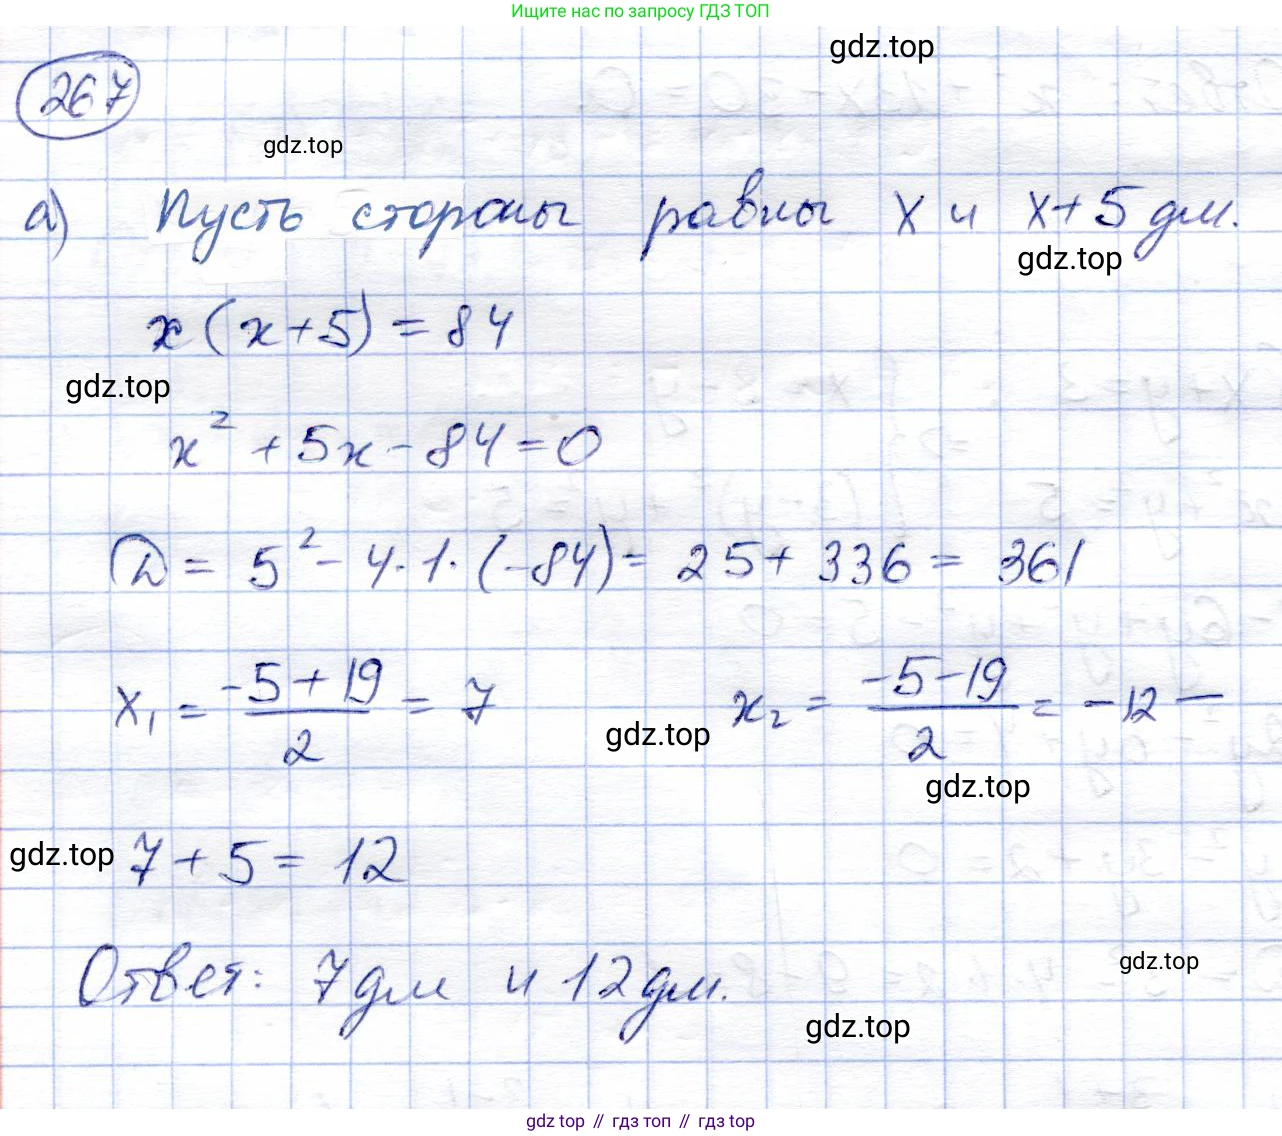 Ищите нас по запросу ГДЗ ТОП
gdz.top
267
gdz.top
а) Пусть стороны равны x и x+5 дм.
gdz.top
x(x+5)=84
gdz.top
x²+5x-84=0
D = 5² - 4·1·(-84) = 25 + 336 = 361
x₁ = (-5+19)/2 = 7 x₂ = (-5-19)/2 = -12 —
gdz.top
gdz.top
gdz.top 7+5=12
Ответ: 7дм и 12дм.
gdz.top
gdz.top
gdz.top // гдз топ // gdz top